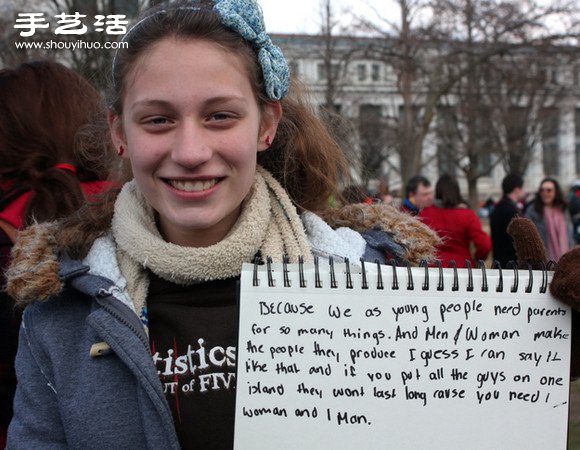 手艺活
www.shouyihuo.com
tistics
UT OF FIV
Because we as young people nerd parents
for so many things. And Men / Woman make
the people they produce I guess I can say It
like that and if you put all the guys on one
island they wont last long cause you need 1
woman and 1 Man.